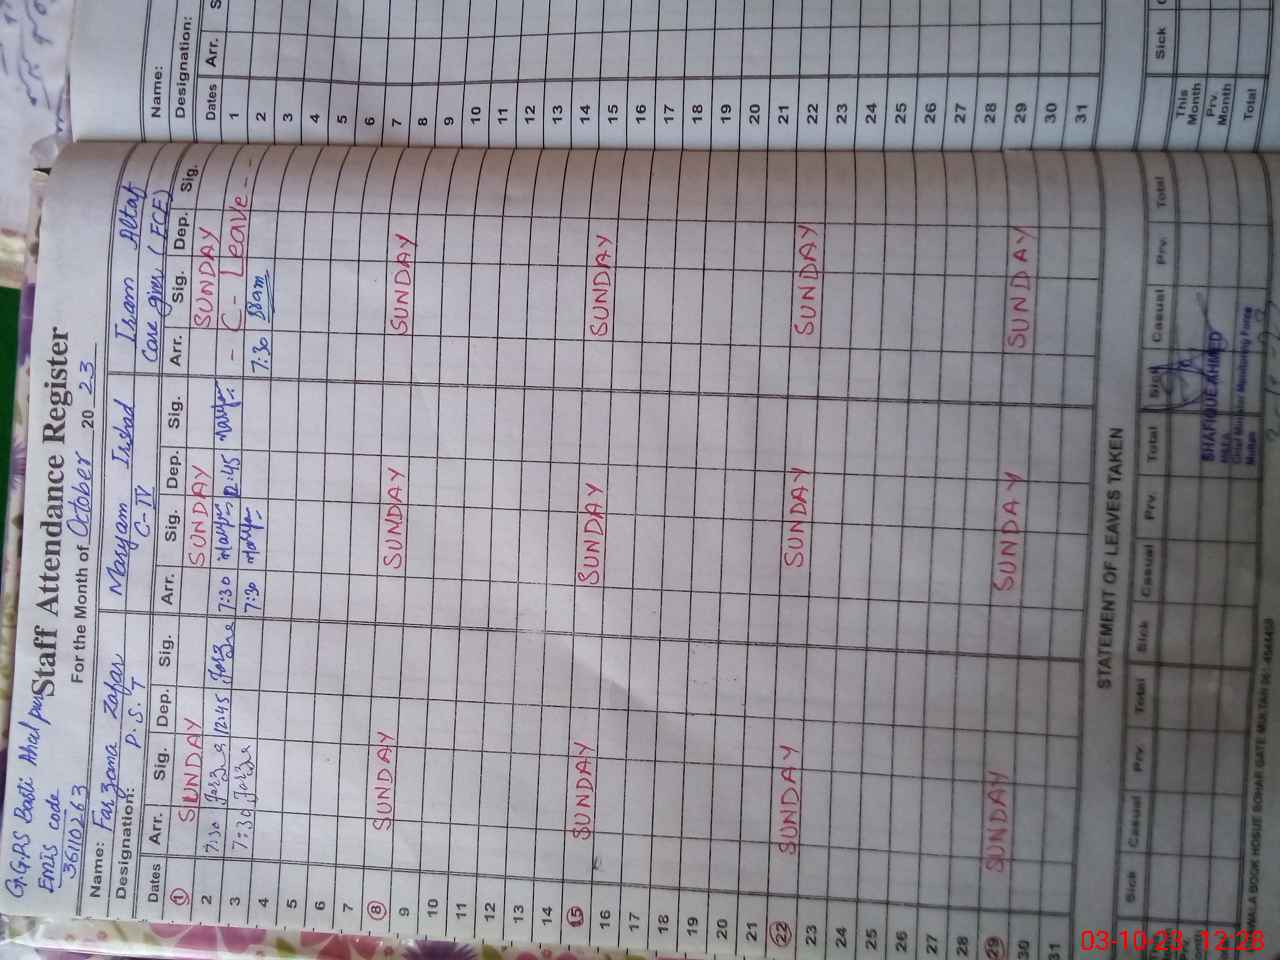 G.G.P.S Basti Ahal pur
Emis code
36110263
Staff Attendance Register
For the Month of October 20 23
Name: Farzana Zafar Maryam Irshad Iram Altaf
Designation: P.S.T C-IV Care giver (ECE)
Dates Arr. Sig. Dep. Sig. Arr. Sig. Dep. Sig. Arr. Sig. Dep. Sig.
1 SUNDAY SUNDAY SUNDAY
2 7:30 12:45 7:30 12:45 - C - Leave -
3 7:30 7:30 7:30
4
5
6
7
8 SUNDAY SUNDAY SUNDAY
9
10
11
12
13
14
15 SUNDAY SUNDAY SUNDAY
16
17
18
19
20
21
22 SUNDAY SUNDAY SUNDAY
23
24
25
26
27
28
29 SUNDAY SUNDAY SUNDAY
30
31
STATEMENT OF LEAVES TAKEN
Sick Casual Prv. Total Sick Casual Prv. Total Sick Casual Prv. Total
SHAFIQUE AHMED
MEA
Chief Minister Monitoring Force
Multan
Name:
Designation:
Dates Arr.
1
2
3
4
5
6
7
8
9
10
11
12
13
14
15
16
17
18
19
20
21
22
23
24
25
26
27
28
29
30
31
Sick
This Month
Prv. Month
Total
03-10-23 12:28